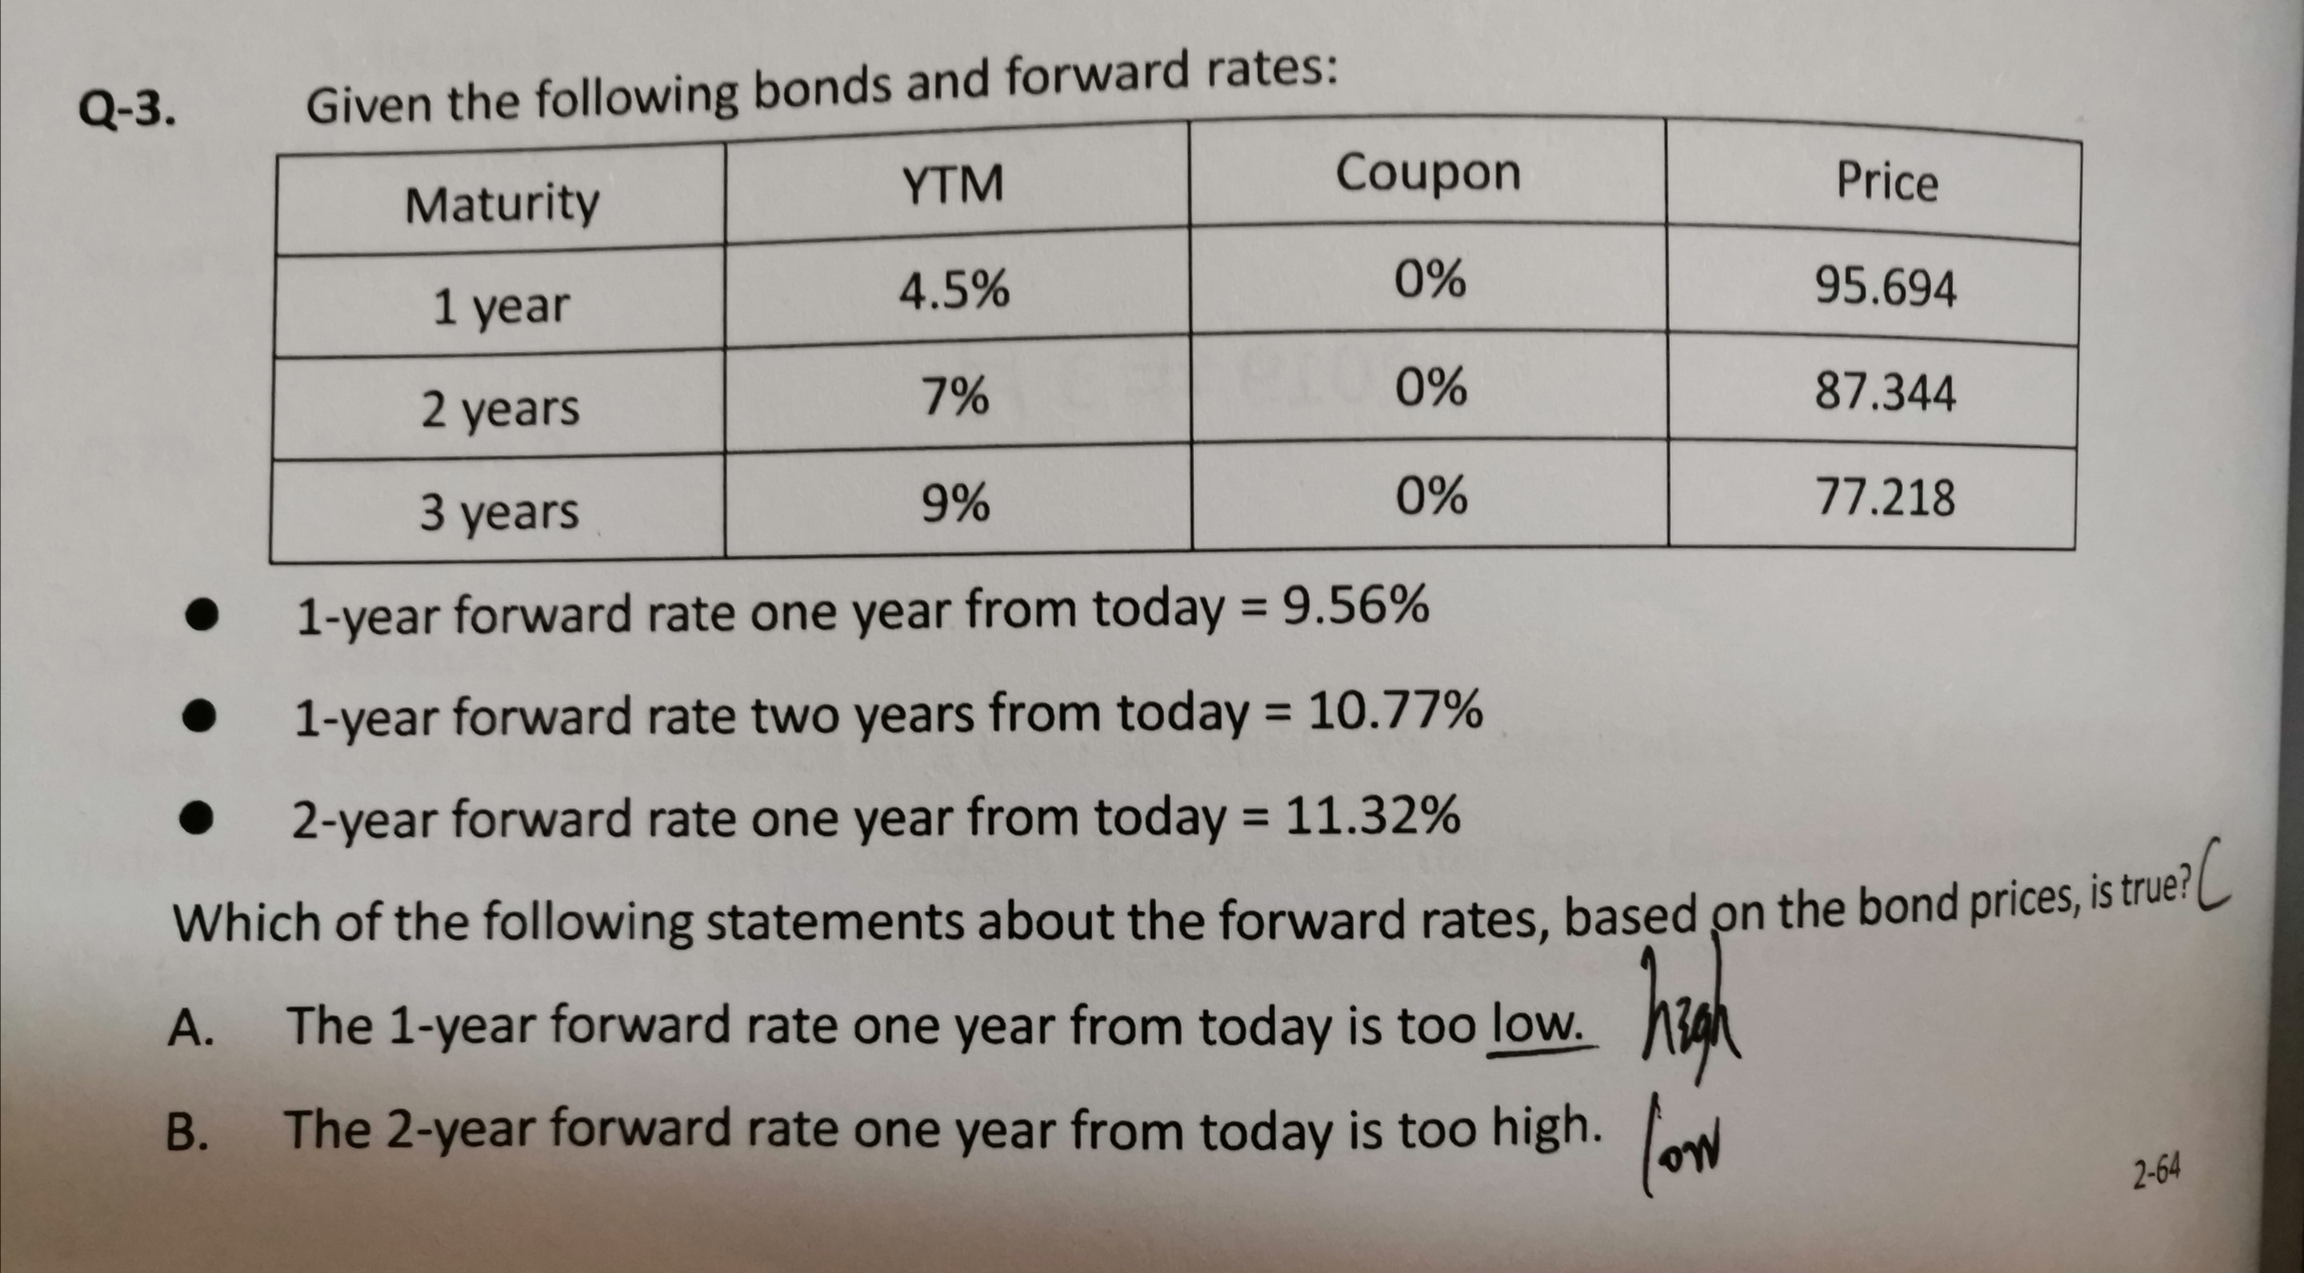 Q-3. Given the following bonds and forward rates:
Maturity YTM Coupon Price
1 year 4.5% 0% 95.694
2 years 7% 0% 87.344
3 years 9% 0% 77.218
● 1-year forward rate one year from today = 9.56%
● 1-year forward rate two years from today = 10.77%
● 2-year forward rate one year from today = 11.32%
Which of the following statements about the forward rates, based on the bond prices, is true? C
A. The 1-year forward rate one year from today is too low. high
B. The 2-year forward rate one year from today is too high. low
2-64